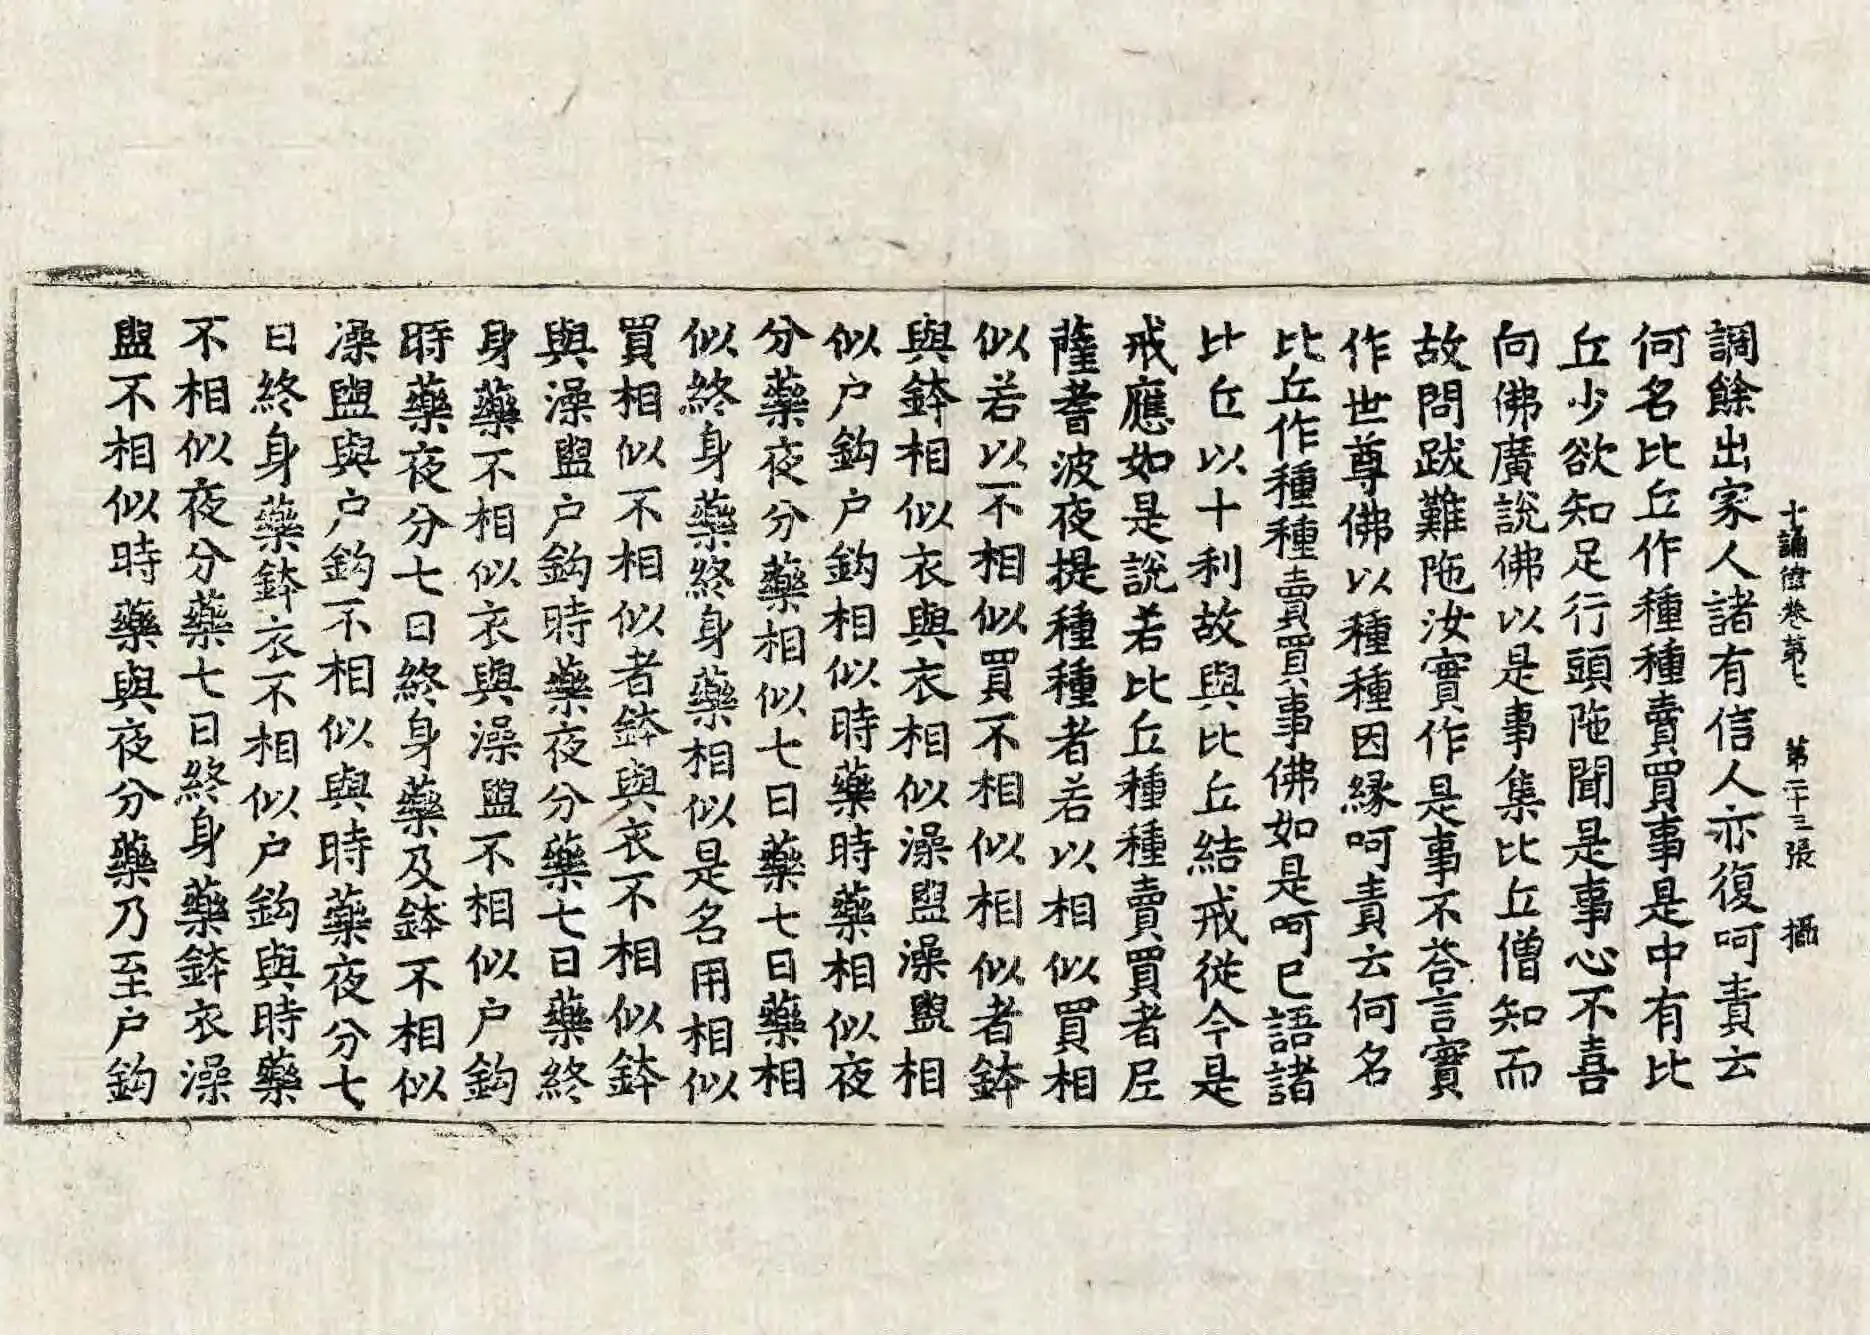 十誦律卷第七 第二十三張 攝
調餘出家人諸有信人亦復呵責云
何名比丘作種種賣買事是中有比
丘少欲知足行頭陁聞是事心不喜
向佛廣說佛以是事集比丘僧知而
故問跋難陁汝實作是事不荅言實
作世尊佛以種種因緣呵責云何名
比丘作種種賣買事佛如是呵已語諸
比丘以十利故與比丘結戒從今是
戒應如是說若比丘種種賣買者尼
薩耆波夜提種種者若以相似買相
似若以不相似買不相似相似者鉢
與鉢相似衣與衣相似澡盥澡盥相
似户鈎户鈎相似時藥時藥相似夜
分藥夜分藥相似七日藥七日藥相
似終身藥終身藥相似是名用相似
買相似不相似者鉢與衣不相似鉢
與澡盥户鈎時藥夜分藥七日藥終
身藥不相似衣與澡盥不相似户鈎
時藥夜分七日終身藥及鉢不相似
澡盥與户鈎不相似與時藥夜分七
日終身藥鉢衣不相似户鈎與時藥
不相似夜分藥七日終身藥鉢衣澡
盥不相似時藥與夜分藥乃至户鈎